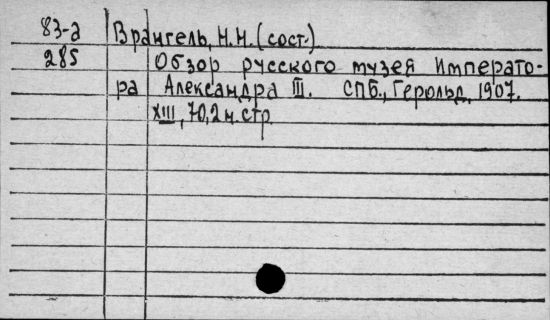 83-2 Врангель, Н.Н. (сост.)
285 Обзор русского музея Императо-
ра Александра III. СПб., Герольд, 1907.
XIII, 70, 2 н. стр.